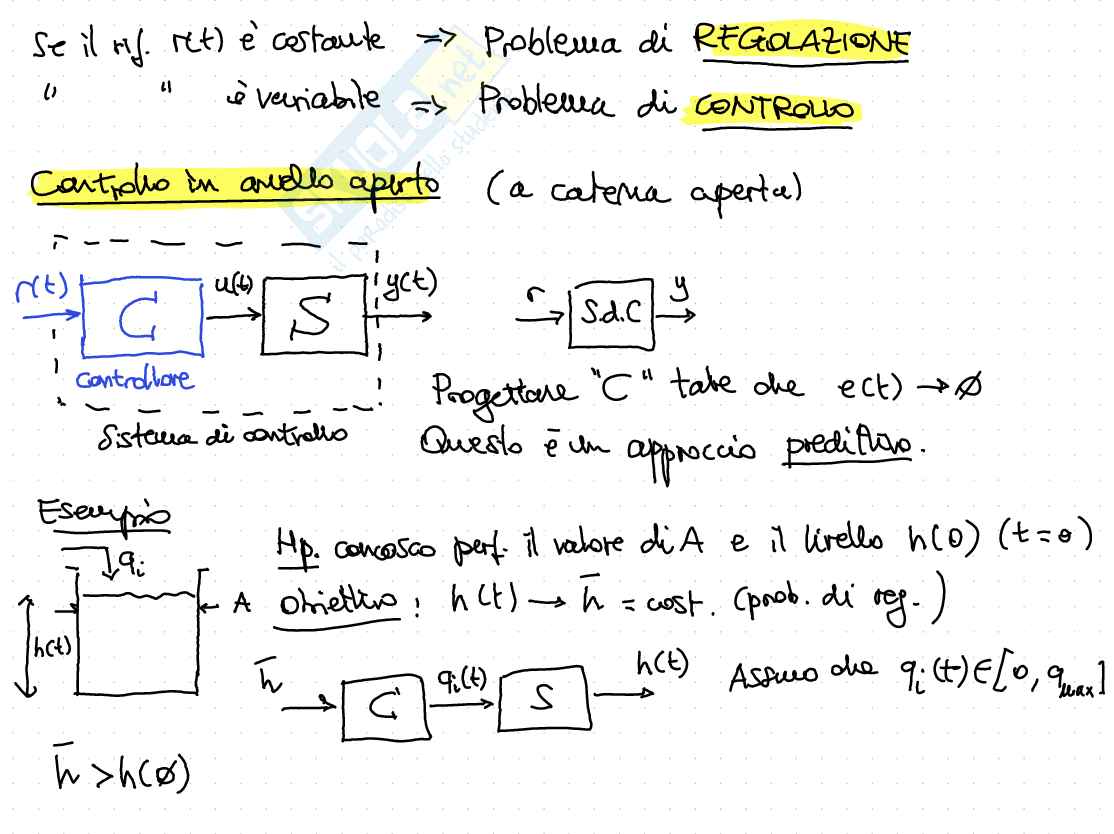 Se il rif. r(t) è costante => Problema di REGOLAZIONE
" " è variabile => Problema di CONTROLLO
Controllo in anello aperto (a catena aperta)
r(t) C u(t) S y(t)
r S.d.C y
Controllore
Sistema di controllo
Progettare "C" tale che e(t) → ∅
Questo è un approccio predittivo.
Esempio
Hp. conosco perf. il valore di A e il livello h(0) (t=0)
qi
A
h(t)
Obiettivo: h(t) → h̅ = cost. (prob. di reg.)
h̅ C qi(t) S h(t)
Assumo che qi(t)∈[0, qmax]
h̅ > h(∅)
SKUOLA.net